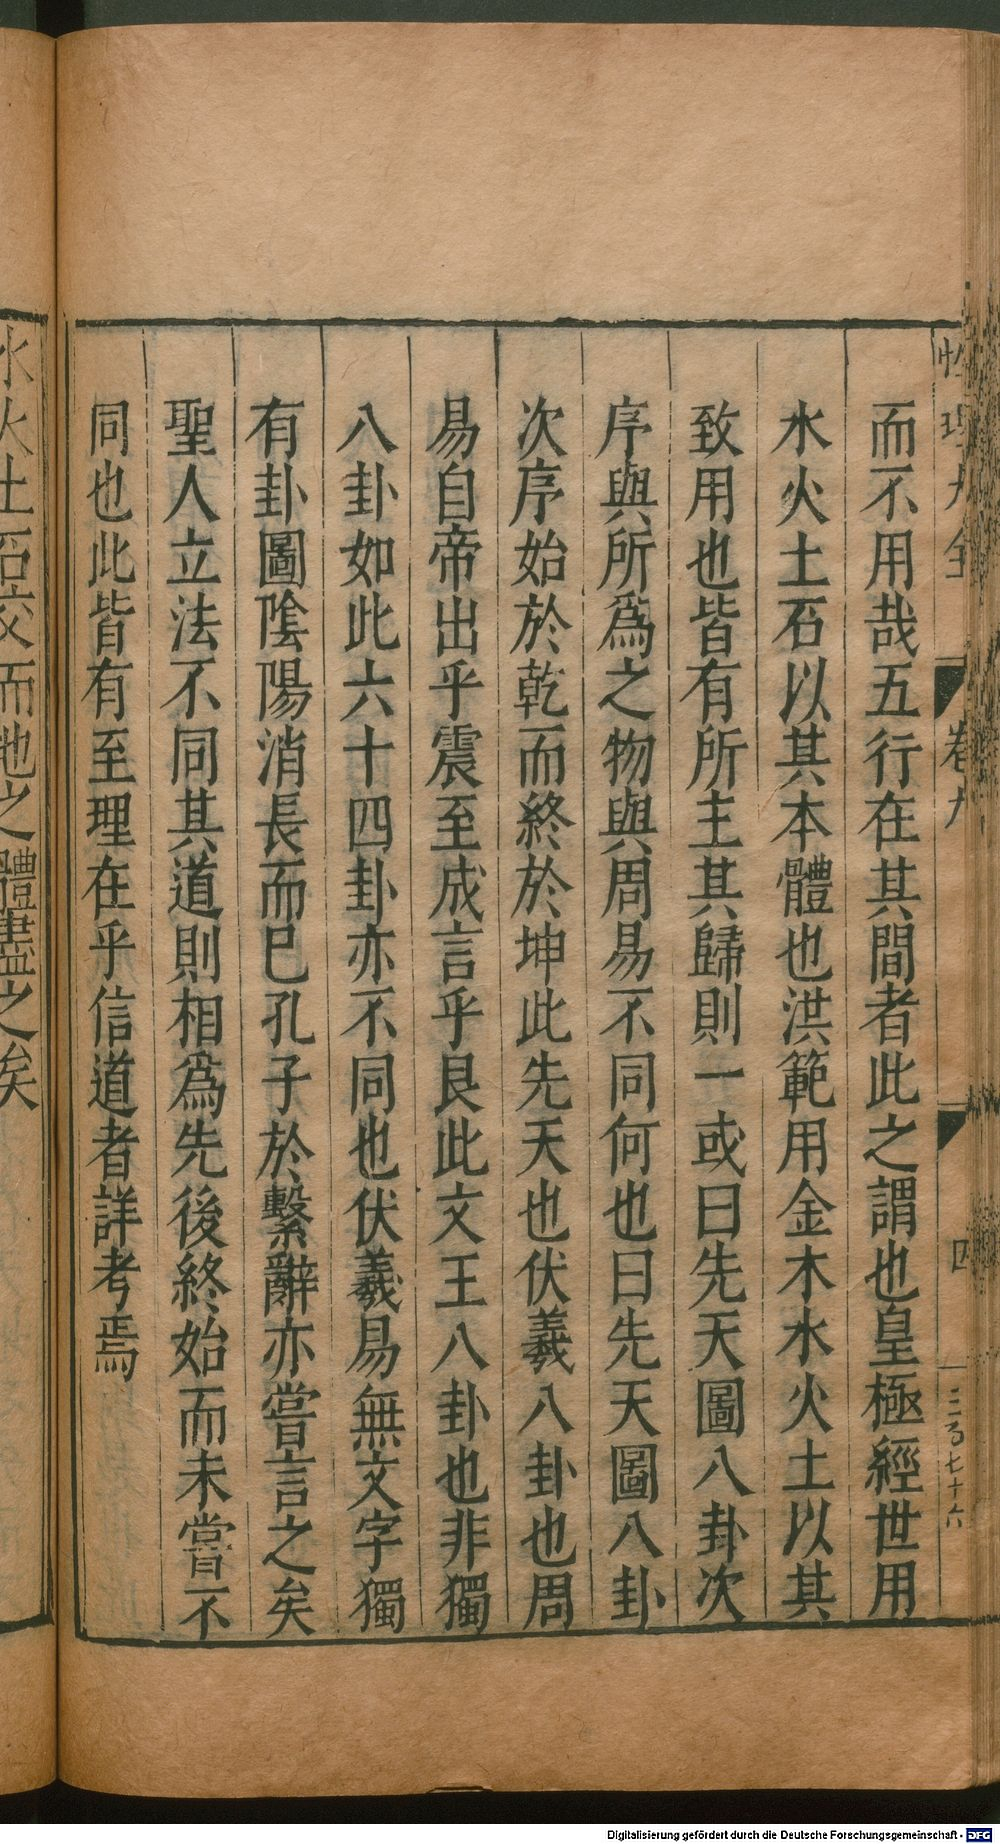 性理大全 卷九 四 三百七十六
而不用哉五行在其間者此之謂也皇極經世用
水火土石以其本體也洪範用金木水火土以其
致用也皆有所主其歸則一或曰先天圖八卦次
序與所爲之物與周易不同何也曰先天圖八卦
次序始於乾而終於坤此先天也伏羲八卦也周
易自帝出乎震至成言乎艮此文王八卦也非獨
八卦如此六十四卦亦不同也伏羲易無文字獨
有卦圖陰陽消長而巳孔子於繫辭亦嘗言之矣
聖人立法不同其道則相爲先後終始而未嘗不
同也此皆有至理在乎信道者詳考焉
水火土石交而地之體盡之矣
Digitalisierung gefördert durch die Deutsche Forschungsgemeinschaft - DFG